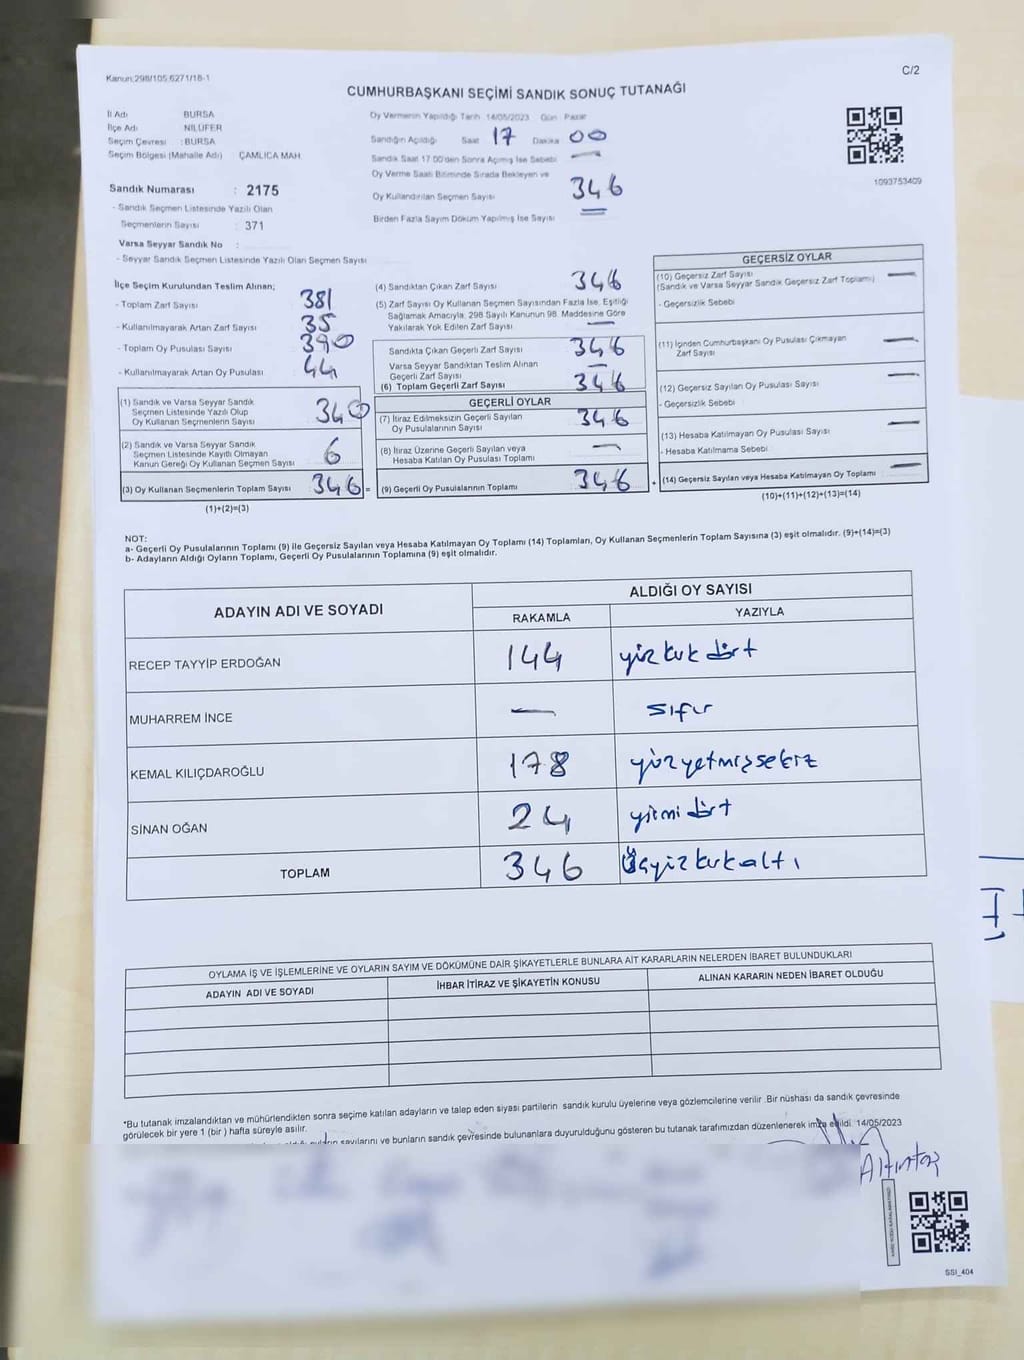 Kanun:298/105,6271/18-1
C/2
CUMHURBAŞKANI SEÇİMİ SANDIK SONUÇ TUTANAĞI
İl Adı BURSA
İlçe Adı NİLÜFER
Seçim Çevresi : BURSA
Seçim Bölgesi (Mahalle Adı) ÇAMLICA MAH.
Sandık Numarası : 2175
- Sandık Seçmen Listesinde Yazılı Olan
Seçmenlerin Sayısı : 371
Varsa Seyyar Sandık No :
- Seyyar Sandık Seçmen Listesinde Yazılı Olan Seçmen Sayısı
Oy Vermenin Yapıldığı Tarih 14/05/2023 Gün Pazar
Sandığın Açıldığı Saat 17 Dakika 00
Sandık Saat 17.00'den Sonra Açılmış İse Sebebi —
Oy Verme Saati Bitiminde Sırada Bekleyen ve
Oy Kullandırılan Seçmen Sayısı 346
Birden Fazla Sayım Döküm Yapılmış İse Sayısı
1093753409
İlçe Seçim Kurulundan Teslim Alınan;
- Toplam Zarf Sayısı 381
- Kullanılmayarak Artan Zarf Sayısı 35
- Toplam Oy Pusulası Sayısı 390
- Kullanılmayarak Artan Oy Pusulası 44
(1) Sandık ve Varsa Seyyar Sandık
Seçmen Listesinde Yazılı Olup
Oy Kullanan Seçmenlerin Sayısı 340
(2) Sandık ve Varsa Seyyar Sandık
Seçmen Listesinde Kayıtlı Olmayan
Kanun Gereği Oy Kullanan Seçmen Sayısı 6
(3) Oy Kullanan Seçmenlerin Toplam Sayısı 346
(1)+(2)=(3)
(4) Sandıktan Çıkan Zarf Sayısı 346
(5) Zarf Sayısı Oy Kullanan Seçmen Sayısından Fazla İse, Eşitliği
Sağlamak Amacıyla, 298 Sayılı Kanunun 98. Maddesine Göre
Yakılarak Yok Edilen Zarf Sayısı —
Sandıkta Çıkan Geçerli Zarf Sayısı 346
Varsa Seyyar Sandıktan Teslim Alınan
Geçerli Zarf Sayısı —
(6) Toplam Geçerli Zarf Sayısı 346
GEÇERLİ OYLAR
(7) İtiraz Edilmeksizin Geçerli Sayılan
Oy Pusulalarının Sayısı 346
(8) İtiraz Üzerine Geçerli Sayılan veya
Hesaba Katılan Oy Pusulası Toplamı —
= (9) Geçerli Oy Pusulalarının Toplamı 346
GEÇERSİZ OYLAR
(10) Geçersiz Zarf Sayısı —
(Sandık ve Varsa Seyyar Sandık Geçersiz Zarf Toplamı)
- Geçersizlik Sebebi
(11) İçinden Cumhurbaşkanı Oy Pusulası Çıkmayan
Zarf Sayısı —
(12) Geçersiz Sayılan Oy Pusulası Sayısı —
- Geçersizlik Sebebi
(13) Hesaba Katılmayan Oy Pusulası Sayısı —
- Hesaba Katılmama Sebebi
+ (14) Geçersiz Sayılan veya Hesaba Katılmayan Oy Toplamı —
(10)+(11)+(12)+(13)=(14)
NOT:
a- Geçerli Oy Pusulalarının Toplamı (9) ile Geçersiz Sayılan veya Hesaba Katılmayan Oy Toplamı (14) Toplamları, Oy Kullanan Seçmenlerin Toplam Sayısına (3) eşit olmalıdır. (9)+(14)=(3)
b- Adayların Aldığı Oyların Toplamı, Geçerli Oy Pusulalarının Toplamına (9) eşit olmalıdır.
ADAYIN ADI VE SOYADI ALDIĞI OY SAYISI
RAKAMLA YAZIYLA
RECEP TAYYİP ERDOĞAN 144 yüz kırk dört
MUHARREM İNCE — sıfır
KEMAL KILIÇDAROĞLU 178 yüzyetmişsekiz
SİNAN OĞAN 24 yirmi dört
TOPLAM 346 Üçyüzkırkaltı
OYLAMA İŞ VE İŞLEMLERİNE VE OYLARIN SAYIM VE DÖKÜMÜNE DAİR ŞİKAYETLERLE BUNLARA AİT KARARLARIN NELERDEN İBARET BULUNDUKLARI
ADAYIN ADI VE SOYADI İHBAR İTİRAZ VE ŞİKAYETİN KONUSU ALINAN KARARIN NEDEN İBARET OLDUĞU
*Bu tutanak imzalandıktan ve mühürlendikten sonra seçime katılan adayların ve talep eden siyasi partilerin sandık kurulu üyelerine veya gözlemcilerine verilir .Bir nüshası da sandık çevresinde
görülecek bir yere 1 (bir ) hafta süreyle asılır.
sayılarını ve bunların sandık çevresinde bulunanlara duyurulduğunu gösteren bu tutanak tarafımızdan düzenlenerek imza edildi. 14/05/2023
Altıntaş
SSI_404